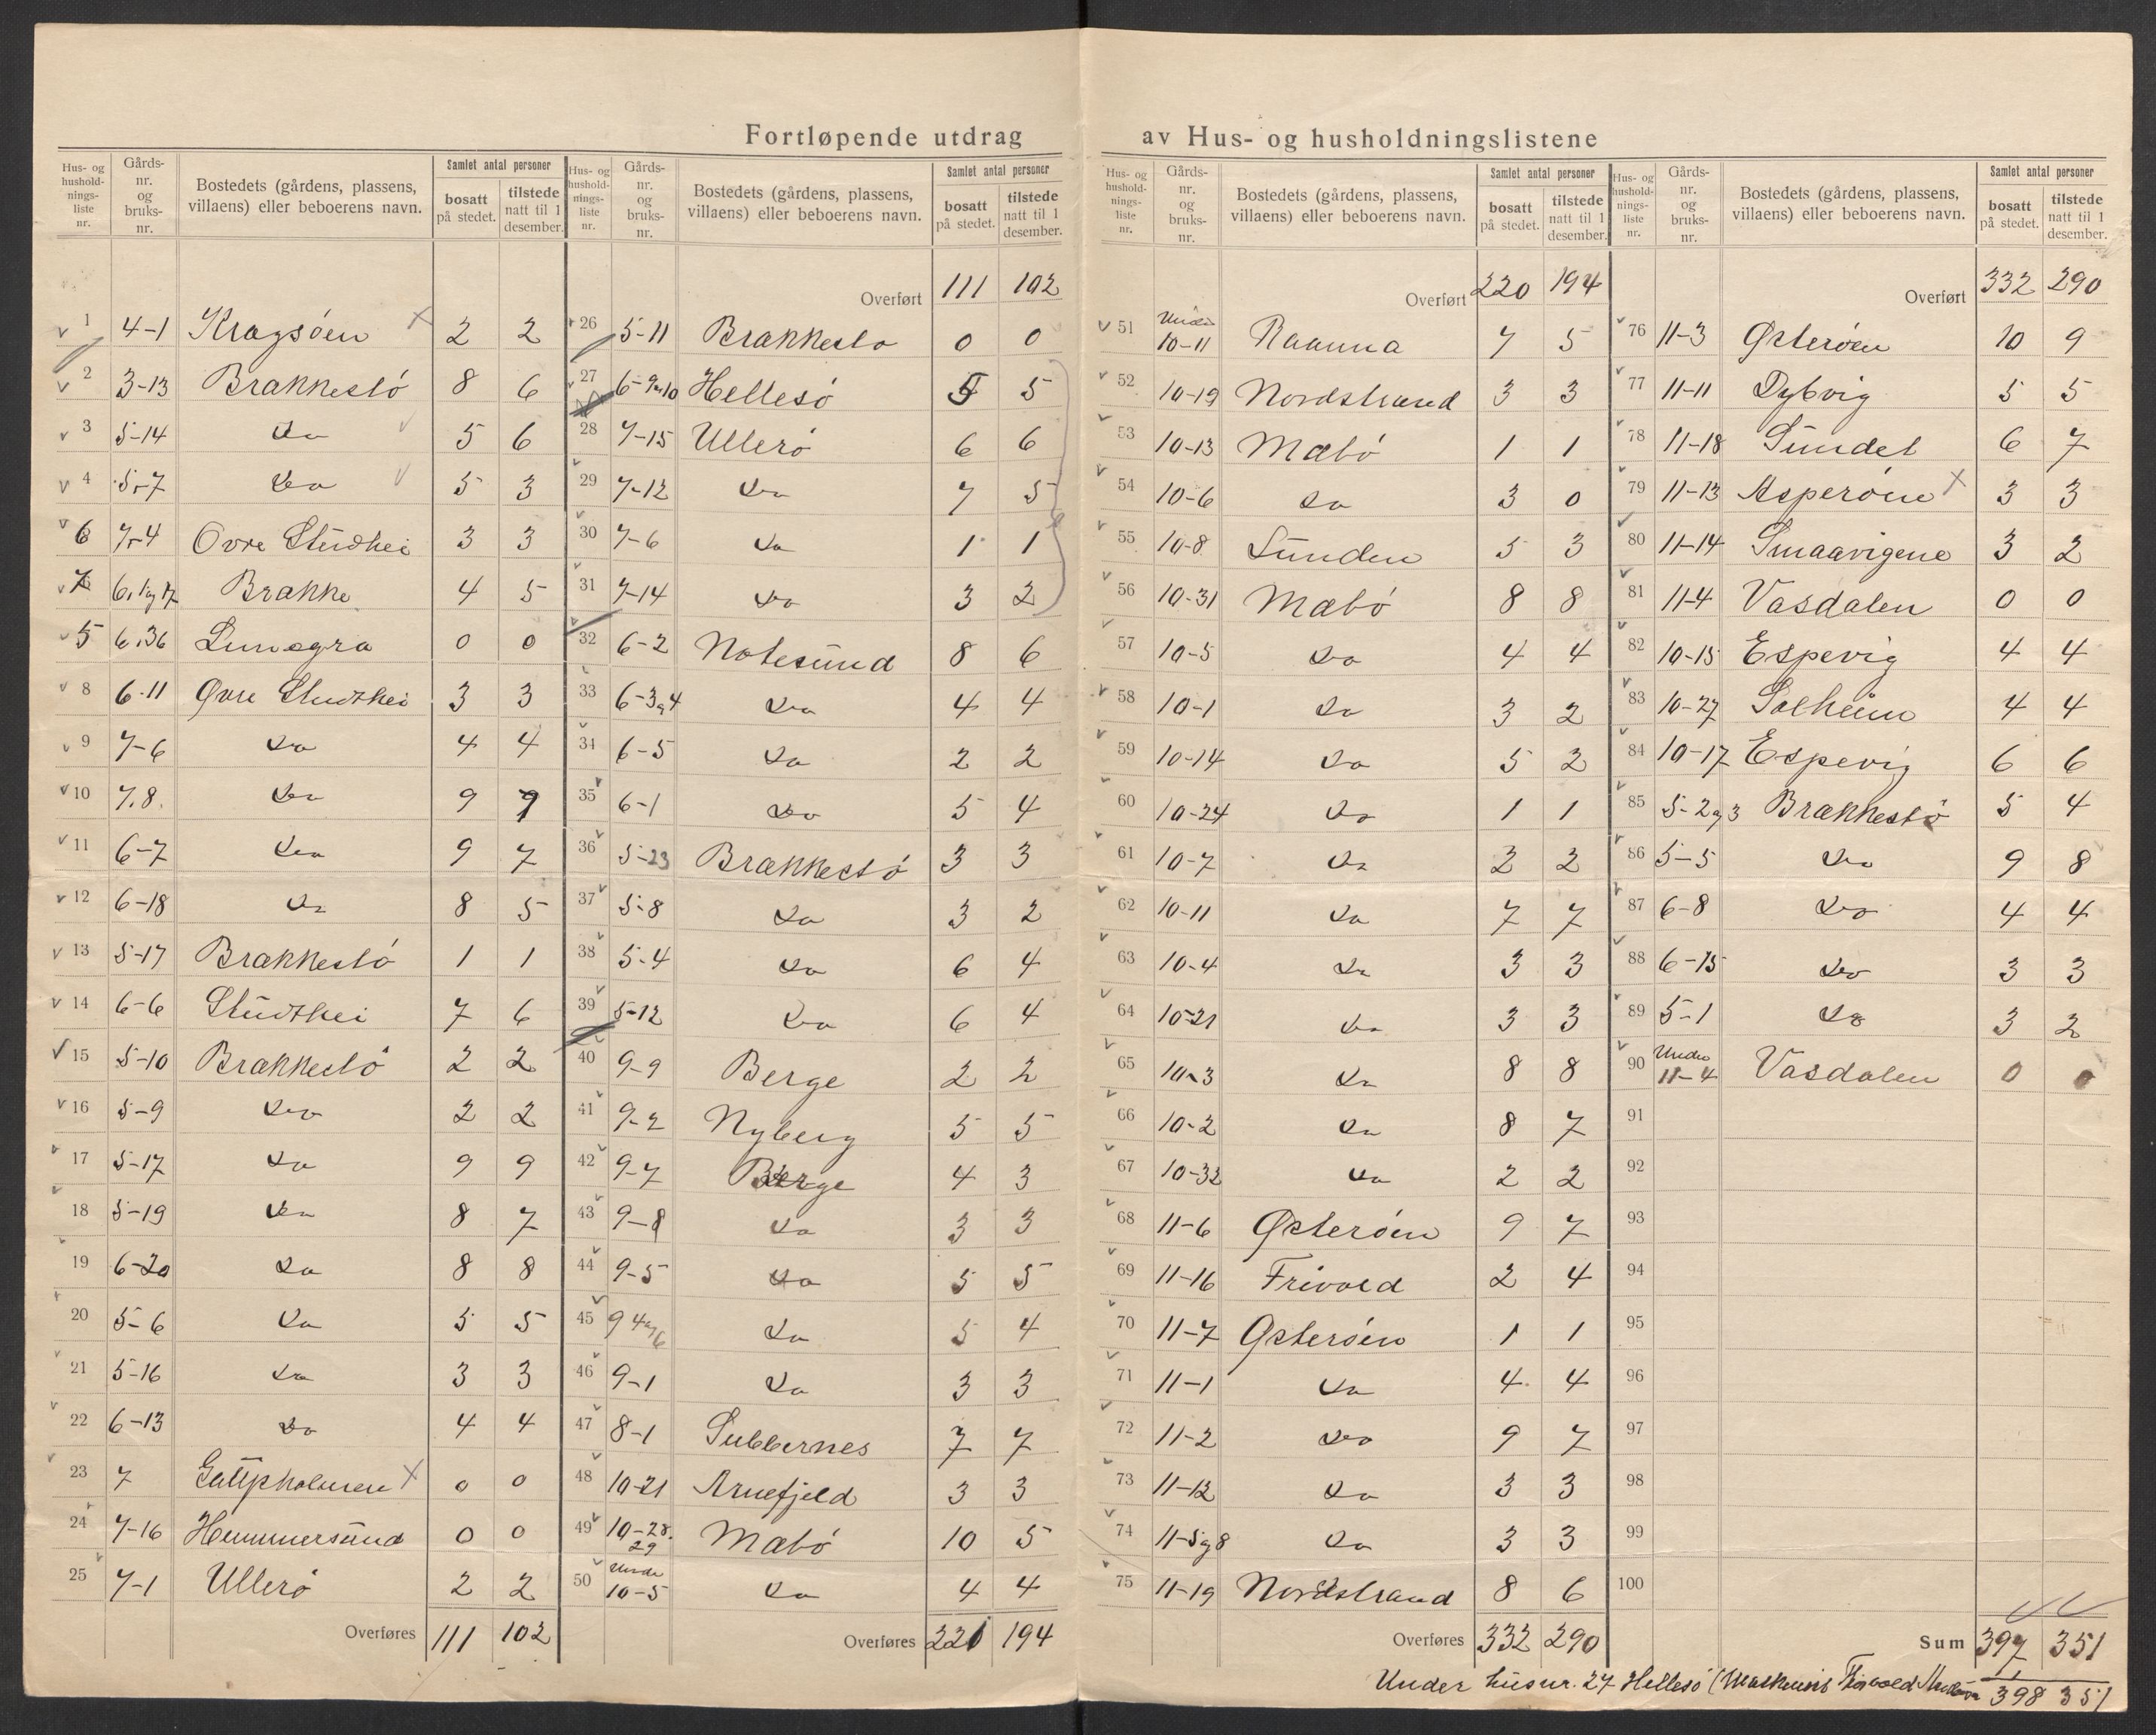 Fortløpende utdrag av Hus- og husholdningslistene
Hus- og husholdnings-liste nr. Gårds-nr. og bruks-nr. Bostedets (gårdens, plassens, villaens) eller beboerens navn. Samlet antal personer bosatt på stedet. tilstede natt til 1 desember.
1 4-1 Kragsöen 2 2
2 3-13 Brækkestö 8 6
3 5-14 Do 5 6
4 5-7 Do 5 3
6 7-4 Ovre Studhei 3 3
7 6, 1 og 17 Brække 4 5
5 6.36 Lunegra 0 0
8 6-11 Øvre Studthei 3 3
9 7-6 Do 4 4
10 7.8. Do 9 9
11 6-7 Do 9 7
12 6-18 Do 8 5
13 5-17 Brækkestö 1 1
14 6-6 Studthei 7 6
15 5-10 Brækkestö 2 2
16 5-9 Do 2 2
17 5-17 Do 9 9
18 5-19 Do 8 7
19 6-20 Do 8 8
20 5-6 Do 5 5
21 5-16 Do 3 3
22 6-13 Do 4 4
23 7 0 0
24 7-16 Hummersund 0 0
25 7-1 Ullerö 2 2
Overføres 111 102
Hus- og husholdnings-liste nr. Gårds-nr. og bruks-nr. Bostedets (gårdens, plassens, villaens) eller beboerens navn. Samlet antal personer bosatt på stedet. tilstede natt til 1 desember.
Overført 111 102
26 5-11 Brækkestø 0 0
27 6-9 og 10 Hellesö 5 5
28 7-15 Ullerö 6 6
29 7-12 Do 7 5
30 7-6 Do 1 1
31 7-14 Do 3 2
32 6-2 Notesund 8 6
33 6-3 og 4 Do 4 4
34 6-5 Do 2 2
35 6-1 Do 5 4
36 5-23 Brækkestö 3 3
37 5-8 Do 3 2
38 5-4 Do 6 4
39 5-12 Do 6 4
40 9-9 Berge 2 2
41 9-2 Nyberg 5 5
42 9-7 Berge 4 3
43 9-8 Do 3 3
44 9-5 Do 5 5
45 9 4 og 6 Do 5 4
46 9-1 Do 3 3
47 8-1 Lubbernes 7 7
48 10-21 Arnefjeld 3 3
49 10-28. 29 Mæbö 10 5
50 Unde 10-5 Do 4 4
Overføres 221 194
Hus- og husholdnings-liste nr. Gårds-nr. og bruks-nr. Bostedets (gårdens, plassens, villaens) eller beboerens navn. Samlet antal personer bosatt på stedet. tilstede natt til 1 desember.
Overført 220 194
51 Under 10-11 Raanna 7 5
52 10-19 Nordstrand 3 3
53 10-13 Mæbö 1 1
54 10-6 Do 3 0
55 10-8 Sunden 5 3
56 10-31 Mæbö 8 8
57 10-5 Do 4 4
58 10-1 Do 3 2
59 10-14 Do 5 2
60 10-24 Do 1 1
61 10-7 Do 2 2
62 10-11 Do 7 7
63 10-4 Do 3 3
64 10-21 Do 3 3
65 10-3 Do 8 8
66 10-2 Do 8 7
67 10-32 Do 2 2
68 11-6 Østeröen 9 7
69 11-16 Frivold 2 4
70 11-7 Østeröen 1 1
71 11-1 Do 4 4
72 11-2 Do 9 7
73 11-12 Do 3 3
74 11-5 og 8 Do 3 3
75 11-19 Nordstrand 8 6
Overføres 332 290
Hus- og husholdnings-liste nr. Gårds-nr. og bruks-nr. Bostedets (gårdens, plassens, villaens) eller beboerens navn. Samlet antal personer bosatt på stedet. tilstede natt til 1 desember.
Overført 332 290
76 11-3 Østerøen 10 9
77 11-11 Dybvig 5 5
78 11-18 Sundet 6 7
79 11-13 Asperöen 3 3
80 11-14 Smaavigene 3 2
81 11-4 Vasdalen 0 0
82 10-15 Espevig 4 4
83 10-27 Solheim 4 4
84 10-17 Espevig 6 6
85 5-2 og 3 Brækkestö 5 4
86 5-5 Do 9 8
87 6-8 Do 4 4
88 6-15 Do 3 3
89 5-1 Do 3 2
90 Under 11-4 Vasdalen 0 0
91
92
93
94
95
96
97
98
99
100
Sum 397 351
Under husnr. 27 Hellesö 398 351